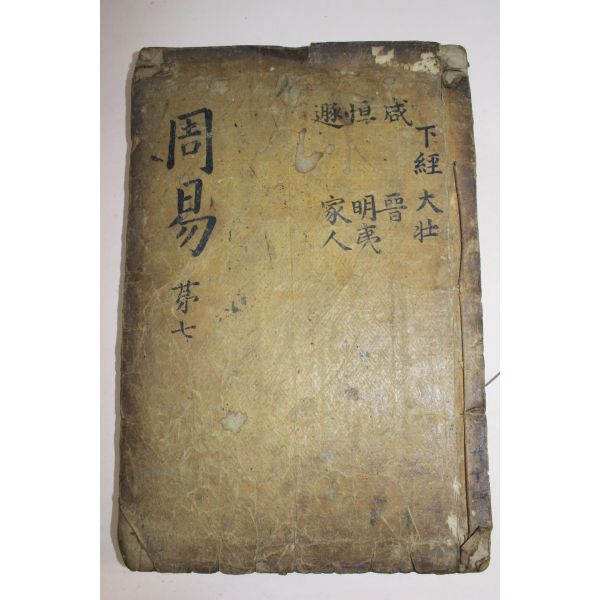 周易
第七
下經
咸 恒 遯
大壯
晉 明夷 家人